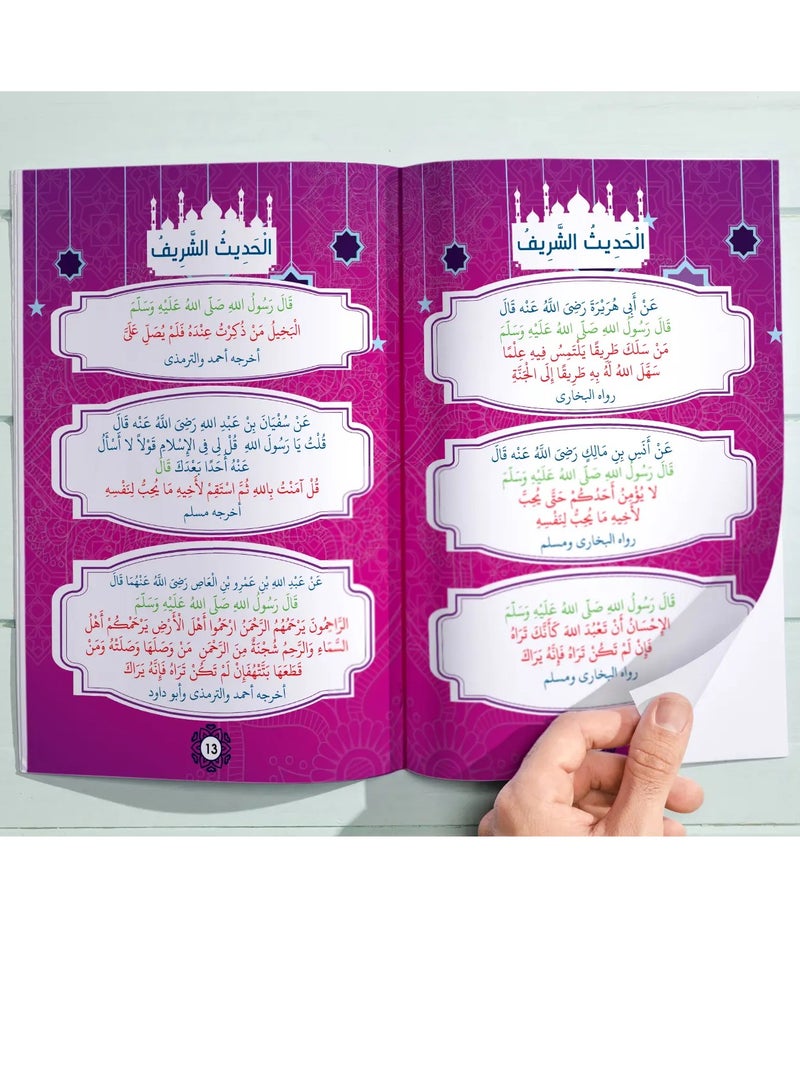 الْحَدِيثُ الشَّرِيفُ
عَنْ أَبِي هُرَيْرَةَ رَضِىَ اللَّهُ عَنْه قَالَ
قَالَ رَسُولُ اللهِ صَلَّى اللهُ عَلَيْهِ وَسَلَّمَ
مَنْ سَلَكَ طَرِيقًا يَلْتَمِسُ فِيهِ عِلْمًا
سَهَّلَ اللهُ لَهُ بِهِ طَرِيقًا إِلَى الْجَنَّةِ
رواه البخارى
عَنْ أَنَسِ بِنِ مَالِكٍ رَضِىَ اللَّهُ عَنْه قَالَ
قَالَ رَسُولُ اللهِ صَلَّى اللهُ عَلَيْهِ وَسَلَّمَ
لا يُؤْمِنُ أَحَدُكُمْ حَتَّى يُحِبَّ
لأَخِيهِ مَا يُحِبُّ لِنَفْسِهِ
رواه البخارى ومسلم
قَالَ رَسُولُ اللهِ صَلَّى اللهُ عَلَيْهِ وَسَلَّمَ
الإِحْسَانُ أَنْ تَعْبُدَ اللهَ كَأَنَّكَ تَرَاهُ
فَإِنْ لَمْ تَكُنْ تَرَاهُ فَإِنَّهُ يَرَاكَ
رواه البخارى ومسلم
الْحَدِيثُ الشَّرِيفُ
قَالَ رَسُولُ اللهِ صَلَّى اللهُ عَلَيْهِ وَسَلَّمَ
الْبَخِيلُ مَنْ ذُكِرْتُ عِنْدَهُ فَلَمْ يُصَلِّ عَلَىَّ
أخرجه أحمد والترمذى
عَنْ سُفْيَانَ بِنِ عَبْدِ اللهِ رَضِىَ اللَّهُ عَنْهُ قَالَ
قُلْتُ يَا رَسُولَ اللهِ قُلْ لِى فِى الإِسْلامِ قَوْلاً لا أَسْأَلُ
عَنْهُ أَحَدًا بَعْدَكَ قَالَ
قُلْ آمَنْتُ بِاللهِ ثُمَّ اسْتَقِمْ لأَخِيهِ مَا يُحِبُّ لِنَفْسِهِ
أخرجه مسلم
عَنْ عَبْدِ اللهِ بْنِ عَمْرِو بْنِ الْعَاصِ رَضِىَ اللَّهُ عَنْهُمَا قَالَ
قَالَ رَسُولُ اللهِ صَلَّى اللهُ عَلَيْهِ وَسَلَّمَ
الرَّاحِمُونَ يَرْحَمُهُمُ الرَّحْمَنُ ارْحَمُوا أَهْلَ الْأَرْضِ يَرْحَمْكُمْ أَهْلُ
السَّمَاءِ وَالرَّحِمُ شُجْنَةٌ مِنَ الرَّحْمَنِ مَنْ وَصَلَهَا وَصَلَتْهُ وَمَنْ
قَطَعَهَا بَتَّتْهُفَإِنْ لَمْ تَكُنْ تَرَاهُ فَإِنَّهُ يَرَاكَ
أخرجه أحمد والترمذى وأبو داود
13